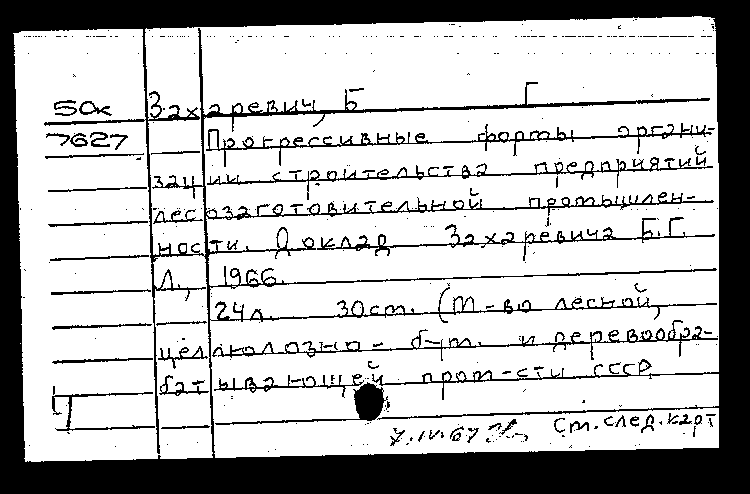 50к Захаревич, Б Г
7627 Прогрессивные формы органи-
зации строительства предприятий
лесозаготовительной промышлен-
ности. Доклад Захаревича Б.Г.
Л., 1966.
24л. 30см. (М-во лесной,
целлюлозно-бум. и деревообра-
батывающей пром-сти СССР
Ч
7.IV.67 См. след. карт